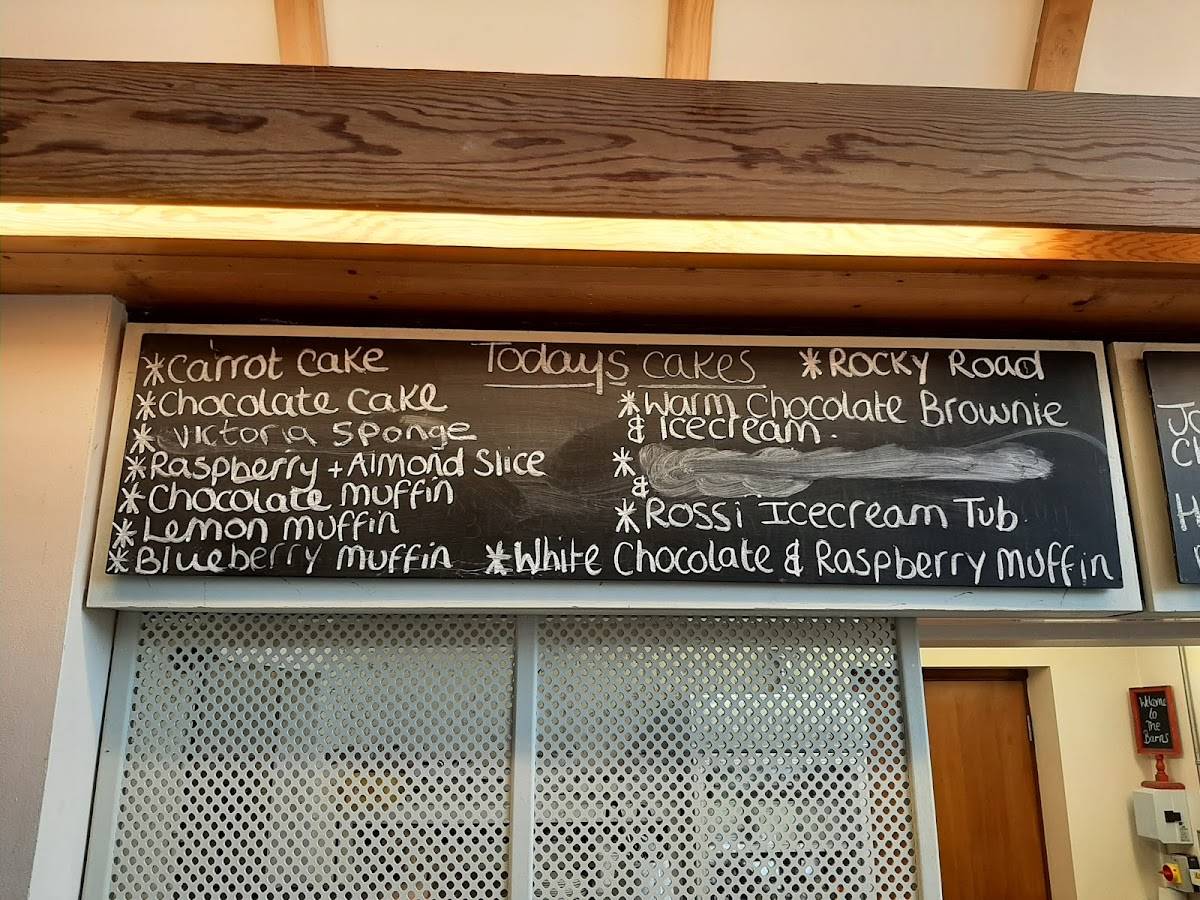 Todays cakes
*Carrot cake
*Chocolate cake
*Victoria sponge
*Raspberry + Almond Slice
*Chocolate muffin
*Lemon muffin
*Blueberry muffin
*Rocky Road
*Warm Chocolate Brownie
& Icecream.
*
&
*Rossi Icecream Tub
*White Chocolate & Raspberry muffin
Welcome
to
The
Barns